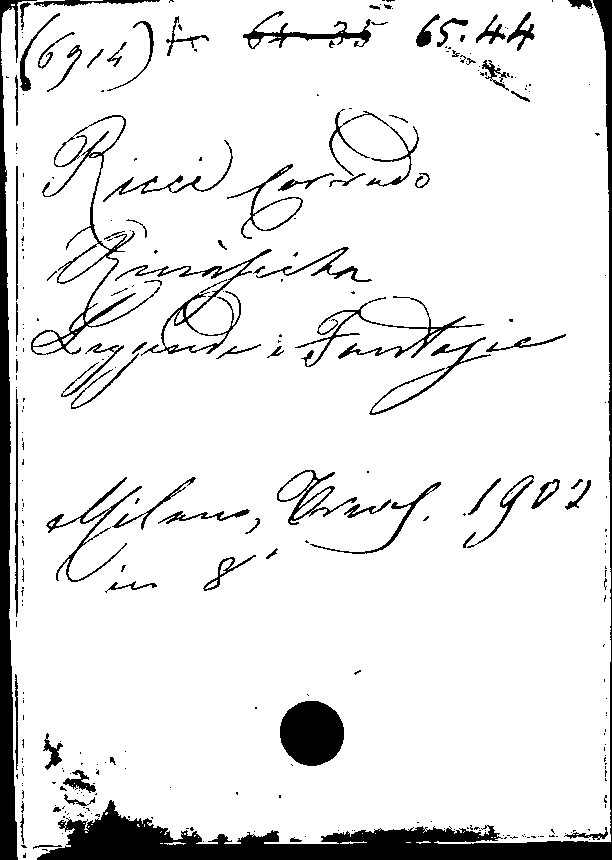 (6914) A 64-35 65.44
Ricci Corrado
Rinascita
Leggende e Fantasie
Milano, Treves. 1902
in 8°